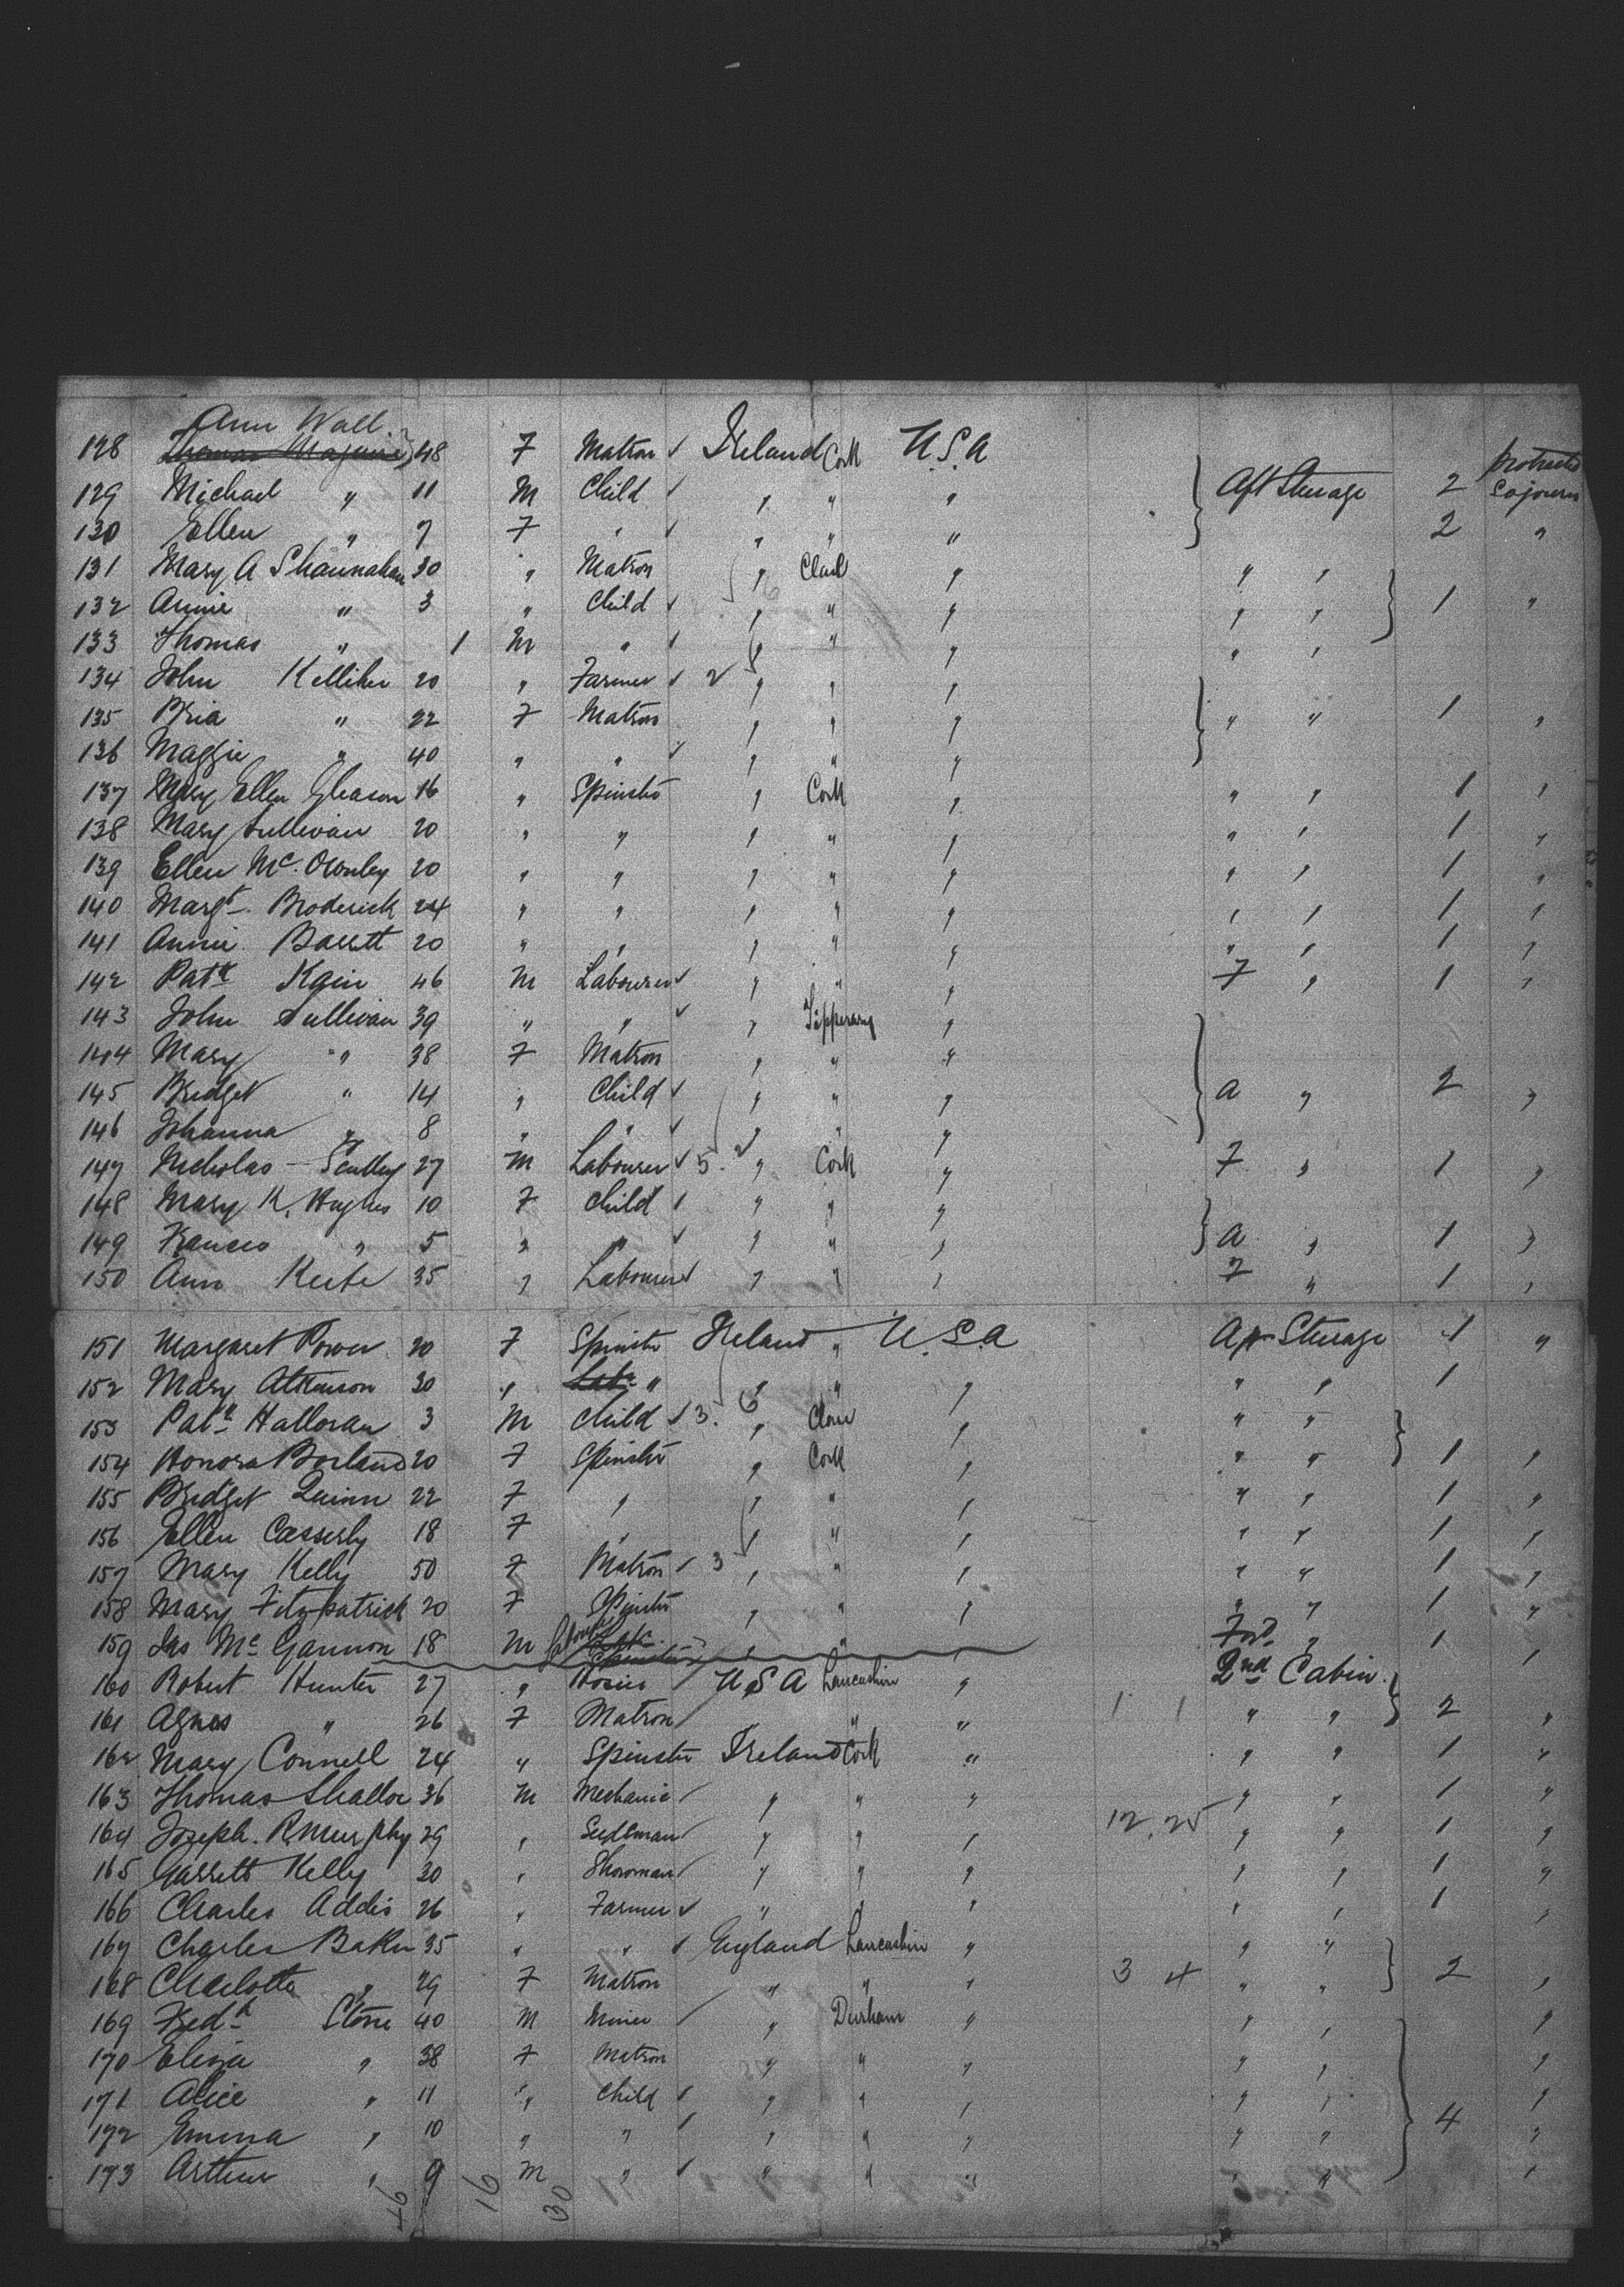 Ann Wall
128 Thomas Maguire 48 F Matron ✓ Ireland Cork U.S.A protracted
129 Michael " 11 M Child ✓ " " " Aft Steerage 2 Sojourn
130 Ellen " 7 F " ✓ " " " 2 "
131 Mary A Shaunahan 30 " Matron " Clare " " "
132 Annie " 3 " Child ✓ " " " " " 1 "
133 Thomas " 1 M " ✓ " " " " "
134 John Kelliher 20 " Farmer ✓ 2 " " "
135 Bria " 22 F Matron " " " " " 1 "
136 Maggie " 40 " " ✓ " " "
137 Mary Ellen Gleason 16 " Spinster " Cork " " " 1 "
138 Mary Sullivan 20 " " " " " " " 1 "
139 Ellen Mc. 20 " " " " " " " 1 "
140 Margt. Broderick 24 " " " " " " " 1 "
141 Annie Barrett 20 " " " " " " " 1 "
142 Patk Kain 46 M Labourer ✓ " " " F " 1 "
143 John Sullivan 39 " " ✓ " Tipperary "
144 Mary " 38 F Matron " " "
145 Bridget " 14 " Child ✓ " " " a " 2 "
146 Johanna " 8 " " ✓ " " "
147 Nicholas Scully 27 M Labourer ✓ 5. " Cork " F " 1 "
148 Mary K. Hughes 10 F Child ✓ " " "
149 Frances " 5 " " ✓ " " " a " 1 "
150 Ann Keefe 35 " Labourer ✓ " " " F " 1 "
151 Margaret Power 20 F Spinster Ireland " U.S.A Aft Steerage 1 "
152 Mary Atkinson 30 " Labr " " " " " " 1
153 Patk Halloran 3 M Child ✓ 3. 6 " Clare " " "
154 Honora Borland 20 F Spinster " Cork " " " 1 "
155 Bridget Quinn 22 F " " " " " " 1 "
156 Ellen Casserly 18 F " " " " " " 1 "
157 Mary Kelly 50 F Matron ✓ 3 " " " " " 1 "
158 Mary Fitzpatrick 20 F Spinster " " " " " 1 "
159 Jas Mc Gannon 18 M Spinster " " " Fwd " 1 "
160 Robert Hunter 27 " Hosier ✓ U S A Lancashire " 2nd Cabin
161 Agnes " 26 F Matron ✓ " " 1 1 " " 2 "
162 Mary Connell 24 " Spinster Ireland Cork " " " 1 "
163 Thomas Shalloe 36 M Mechanic ✓ " " " " " 1 "
164 Joseph. R. Murphy 29 " Seedsman ✓ " " " 12.25 " " 1 "
165 Garrett Kelly 30 " Showman ✓ " " " " " 1 "
166 Charles Addis 26 " Farmer ✓ " " " " " 1 "
167 Charles Baker 35 " " ✓ England Lancashire " " "
168 Charlotte " 29 F Matron " " " 3 4 " " 2 "
169 Fredk Stone 40 M Miner ✓ " Durham " " " "
170 Eliza " 38 F Matron " " " " " "
171 Alice " 11 " Child ✓ " " " " " "
172 Emma " 10 " " ✓ " " " " " 4 "
173 Arthur " 9 M " ✓ " " " " " "
46 16 30